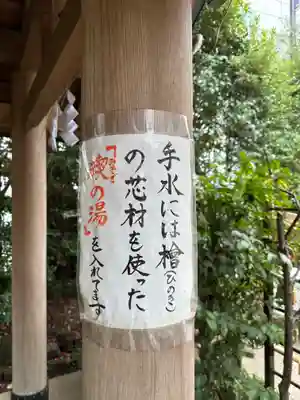 手水には檜(ひのき)
の芯材を使った
「禊の湯」を入れてます